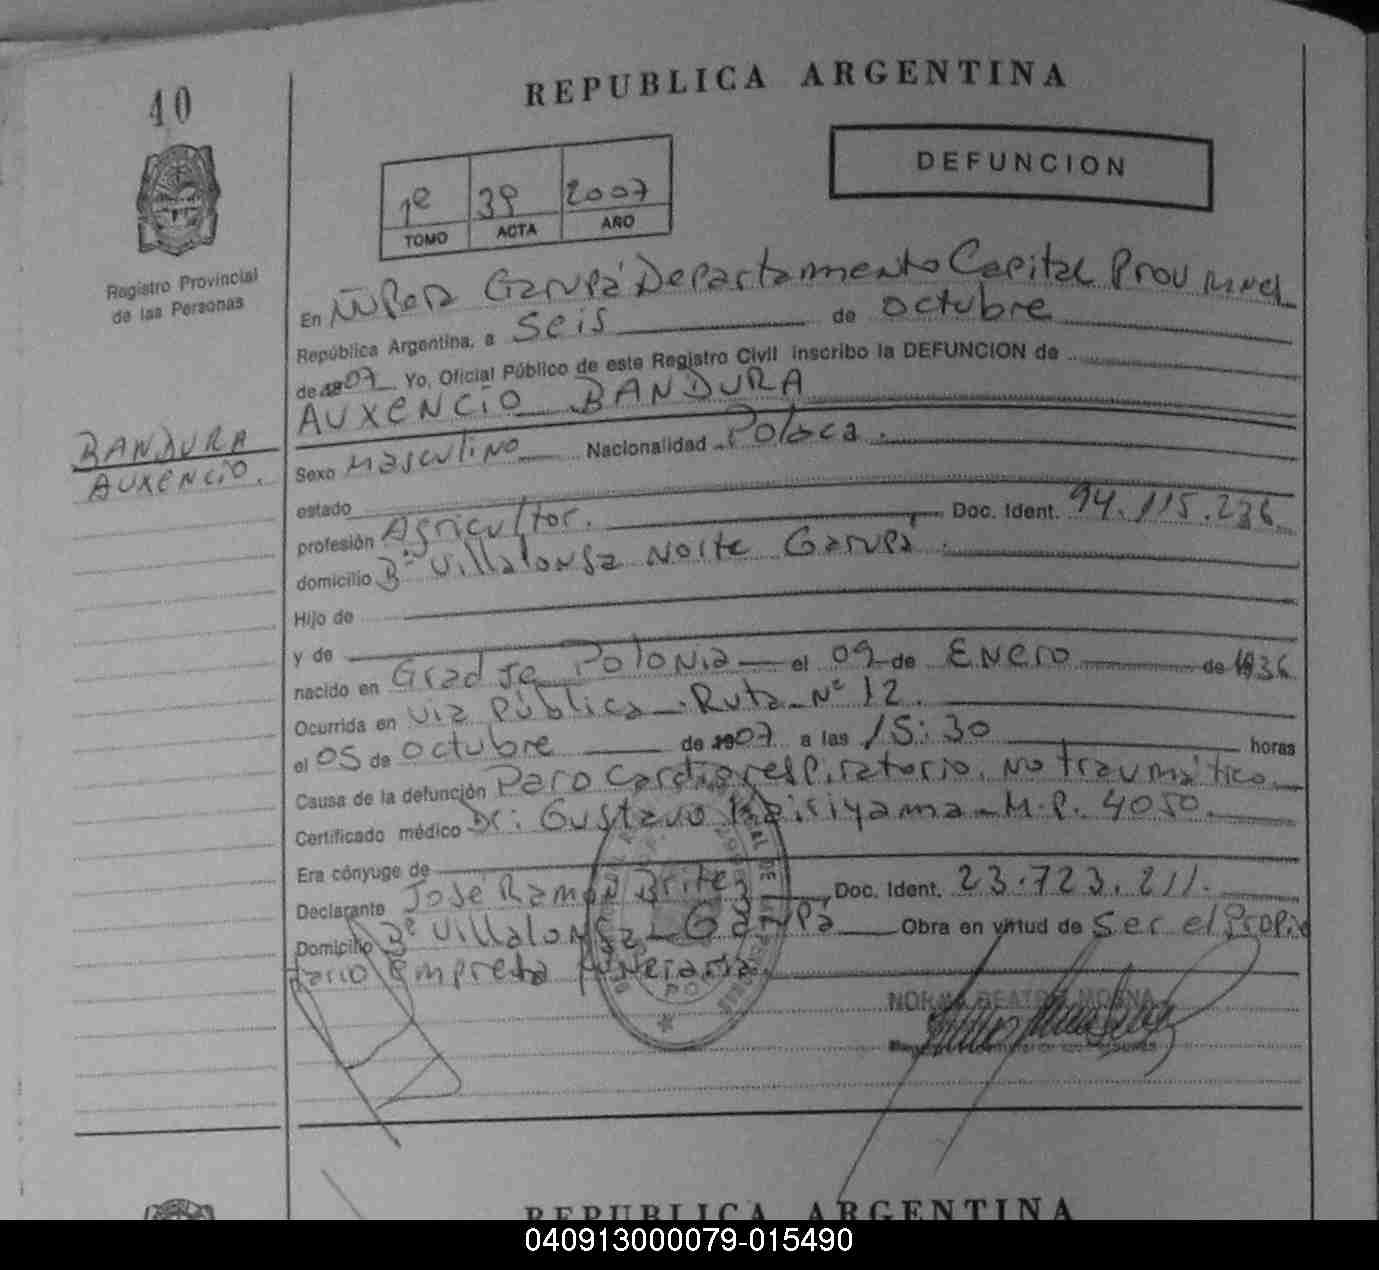 40
REPUBLICA ARGENTINA
DEFUNCION
1º 39 2007
TOMO ACTA AÑO
Registro Provincial
de las Personas
En Garupá Departamento Capital Prov
República Argentina, a Seis de octubre
de 07 Yo, Oficial Público de este Registro Civil inscribo la DEFUNCION de
AUXENCIO BANDURA
BANDURA
AUXENCIO.
Sexo Masculino Nacionalidad Polaca.
estado
profesión Agricultor. Doc. Ident. 94.115.236
domicilio Bº Villalonga Norte Garupá.
Hijo de
y de
nacido en Polonia el 09 de Enero de 1936
Ocurrida en via Pública. Ruta Nº 12.
el 05 de octubre de 07 a las 15:30 horas
Causa de la defunción Paro Cardiorespiratorio. No traumático.
Certificado médico Dr: Gustavo M.P. 4050.
Era cónyuge de
Declarante José Ramon Britez Doc. Ident. 23.723.211.
Domicilio Bº Villalonga Garupá Obra en virtud de Ser el Propie
tario Empresa Funeraria.
NORMA BEATRIZ
REPUBLICA ARGENTINA
040913000079-015490